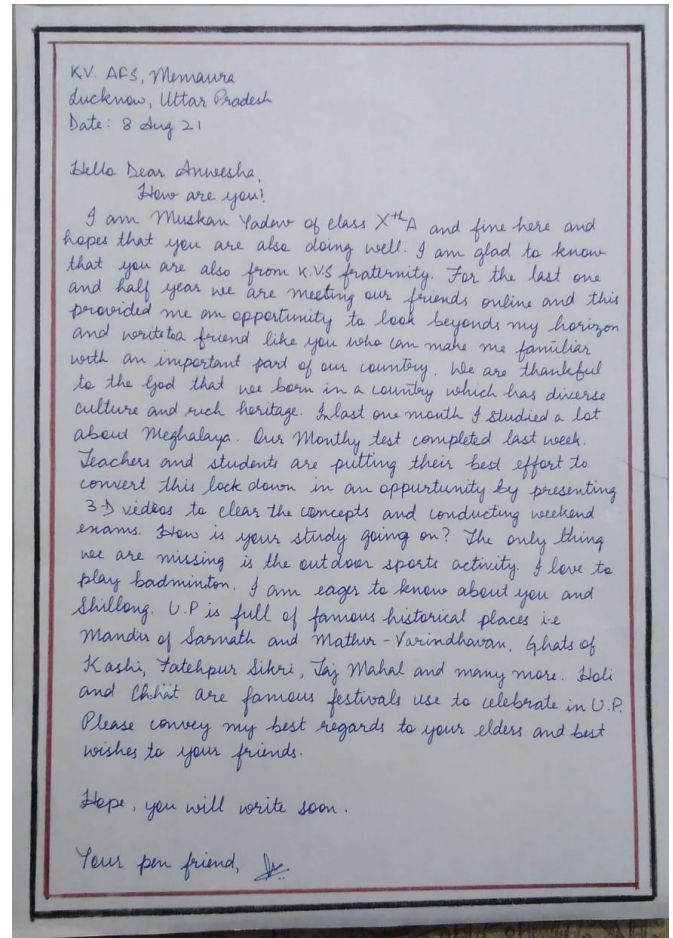 K.V. AFS, Memaura
Lucknow, Uttar Pradesh
Date: 8 Aug 21
Hello Dear Anwesha,
How are you?
I am Muskan Yadav of class XthA and fine here and
hopes that you are also doing well. I am glad to know
that you are also from K.V.S fraternity. For the last one
and half year we are meeting our friends online and this
provided me an opportunity to look beyonds my horizon
and write to a friend like you who can make me familiar
with an important part of our country. We are thankful
to the God that we born in a country which has diverse
culture and rich heritage. In last one month I studied a lot
about Meghalaya. Our Monthy test completed last week.
Teachers and students are putting their best effort to
convert this lock down in an oppurtunity by presenting
3-D videos to clear the concepts and conducting weekend
exams. How is your study going on? The only thing
we are missing is the outdoor sports activity. I love to
play badminton. I am eager to know about you and
Shillong. U.P is full of famous historical places i.e
Mandir of Sarnath and Mathur-Varindhavan, Ghats of
Kashi, Fatehpur Sikri, Taj Mahal and many more. Holi
and Chhat are famous festivals use to celebrate in U.P.
Please convey my best regards to your elders and best
wishes to your friends.
Hope, you will write soon.
Your pen friend,